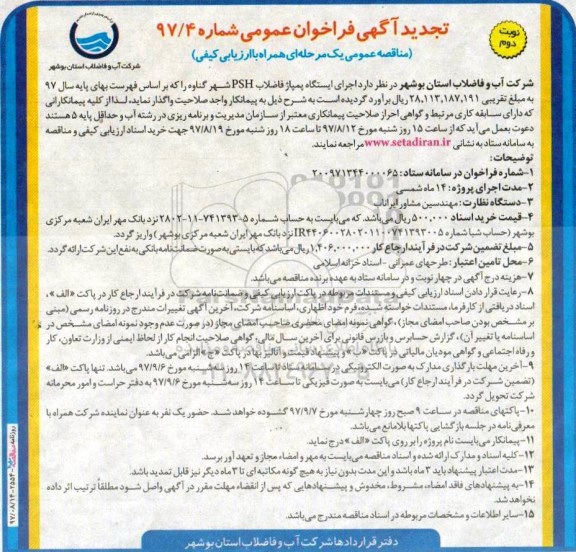 تجدید آگهی فراخوان عمومی شماره ۹۷/۴
(مناقصه عمومی یک مرحله‌ای همراه با ارزیابی کیفی)
نوبت دوم
شرکت آب و فاضلاب استان بوشهر
شرکت آب و فاضلاب استان بوشهر در نظر دارد اجرای ایستگاه پمپاژ فاضلاب PSH شهر گناوه را که بر اساس فهرست بهای پایه سال ۹۷
به مبلغ تقریبی ۲۸,۱۱۳,۱۸۷,۱۹۱ ریال برآورد گردیده است به شرح ذیل به پیمانکار واجد صلاحیت واگذار نماید، لذا از کلیه پیمانکارانی
که دارای سابقه کاری مرتبط و گواهی احراز صلاحیت پیمانکاری معتبر از سازمان مدیریت و برنامه ریزی در رشته آب و حداقل پایه ۵ هستند
دعوت بعمل می‌آید که از ساعت ۱۵ روز شنبه مورخ ۹۷/۸/۱۲ تا ساعت ۱۸ روز شنبه مورخ ۹۷/۸/۱۹ جهت خرید اسناد ارزیابی کیفی و مناقصه
به سامانه ستاد به نشانی www.setadiran.ir مراجعه نمایند.
توضیحات:
۱-شماره فراخوان در سامانه ستاد: ۲۰۰۹۷۱۳۴۴۰۰۰۰۶۵
۲-مدت اجرای پروژه: ۱۴ ماه شمسی
۳-دستگاه نظارت: مهندسین مشاور ایراناب
۴-قیمت خرید اسناد ۵۰۰,۰۰۰ ریال می‌باشد. که می‌بایست به حساب شماره ۵-۷۴۱۳۹۳-۱۱-۲۸۰۲ نزد بانک مهر ایران شعبه مرکزی
بوشهر (حساب شبا شماره IR۴۴۰۶۰۰۲۸۰۲۰۱۱۰۷۴۱۳۹۳۰۰۵ نزد بانک مهر ایران شعبه مرکزی بوشهر) واریز گردد.
۵-مبلغ تضمین شرکت در فرآیند ارجاع کار ۱,۴۰۶,۰۰۰,۰۰۰ ریال می‌باشد که بایستی به صورت ضمانت نامه بانکی به نفع این شرکت ارائه گردد.
۶-محل تامین اعتبار: طرحهای عمرانی - اسناد خزانه اسلامی
۷-هزینه درج آگهی در چهار نوبت و در سامانه ستاد به عهده برنده مناقصه می‌باشد.
۸-رعایت قرار دادن اسناد ارزیابی کیفی و مستندات مربوطه در پاکت ارزیابی کیفی و ضمانت‌نامه شرکت در فرآیند ارجاع کار در پاکت «الف»،
اسناد دریافتی از کارفرما، مستندات خواسته شده، فرم خود اظهاری، اساسنامه شرکت، آخرین آگهی تغییرات مندرج در روزنامه رسمی (مبنی
بر مشخص بودن صاحب امضای مجاز)، گواهی نمونه امضای محضری صاحب امضای مجاز (در صورت عدم وجود نمونه امضای مشخص در
اساسنامه یا تغییر آن)، گزارش حسابرس و بازرس قانونی برای آخرین سال مالی، گواهی صلاحیت انجام کار از لحاظ ایمنی از وزارت تعاون، کار
و رفاه اجتماعی و گواهی مودیان مالیاتی در پاکت «ب» و پیشنهاد قیمت و آنالیز بها در پاکت «ج» الزامی می‌باشد.
۹-آخرین مهلت بارگذاری مدارک به صورت الکترونیکی در سامانه ستاد تا ساعت ۱۲ روز سه‌شنبه مورخ ۹۷/۹/۶ می‌باشد. تنها پاکت «الف»
(تضمین شرکت در فرآیند ارجاع کار) می‌بایست به صورت فیزیکی تا ساعت ۱۴ روز سه‌شنبه مورخ ۹۷/۹/۶ به دفتر حراست و امور محرمانه
شرکت تحویل گردد.
۱۰-پاکتهای مناقصه در ساعت ۹ صبح روز چهارشنبه مورخ ۹۷/۹/۷ گشوده خواهد شد. حضور یک نفر به عنوان نماینده شرکت همراه با
معرفی نامه در جلسه بازگشایی پاکتها بلامانع می‌باشد.
۱۱-پیمانکار می‌بایست نام پروژه را بر روی پاکت «الف» درج نماید.
۱۲-کلیه اسناد و مدارک ارائه شده و اسناد مناقصه می‌بایست به مهر و امضاء مجاز و تعهد آور برسد.
۱۳-مدت اعتبار پیشنهاد باید ۳ ماه باشد و این مدت بدون نیاز به هیچ گونه مکاتبه ای تا ۳ ماه دیگر نیز قابل تمدید باشد.
۱۴-به پیشنهادهای فاقد امضاء، مشروط، مخدوش و پیشنهادهایی که پس از انقضاء مهلت مقرر در آگهی واصل شود مطلقاً ترتیب اثر داده
نخواهد شد.
۱۵-سایر اطلاعات و مشخصات مربوطه در اسناد مناقصه مندرج می‌باشد.
دفتر قراردادها شرکت آب و فاضلاب استان بوشهر